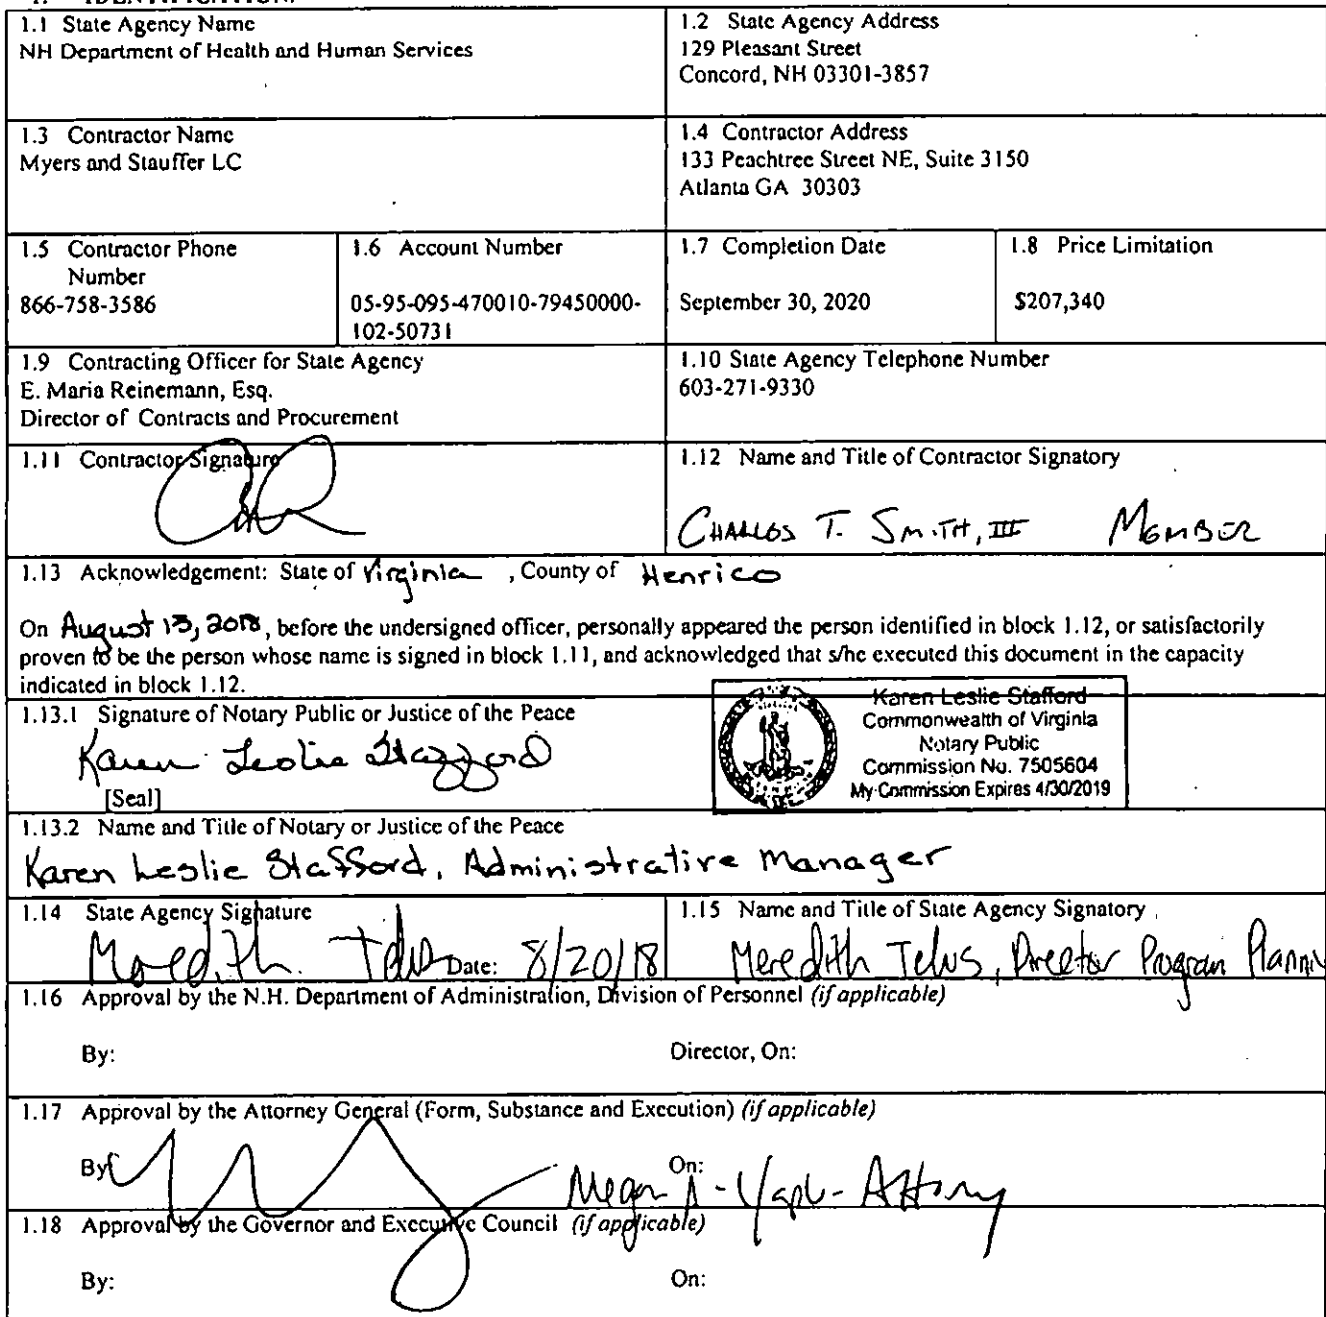 1. IDENTIFICATION.
1.1 State Agency Name
NH Department of Health and Human Services
1.2 State Agency Address
129 Pleasant Street
Concord, NH 03301-3857
1.3 Contractor Name
Myers and Stauffer LC
1.4 Contractor Address
133 Peachtree Street NE, Suite 3150
Atlanta GA 30303
1.5 Contractor Phone
Number
866-758-3586
1.6 Account Number
05-95-095-470010-79450000-
102-50731
1.7 Completion Date
September 30, 2020
1.8 Price Limitation
$207,340
1.9 Contracting Officer for State Agency
E. Maria Reinemann, Esq.
Director of Contracts and Procurement
1.10 State Agency Telephone Number
603-271-9330
1.11 Contractor Signature
1.12 Name and Title of Contractor Signatory
CHARLES T. SMITH, III MEMBER
1.13 Acknowledgement: State of Virginia , County of Henrico
On August 13, 2018, before the undersigned officer, personally appeared the person identified in block 1.12, or satisfactorily
proven to be the person whose name is signed in block 1.11, and acknowledged that s/he executed this document in the capacity
indicated in block 1.12.
1.13.1 Signature of Notary Public or Justice of the Peace
Karen Leslie Stafford
[Seal]
Karen Leslie Stafford
Commonwealth of Virginia
Notary Public
Commission No. 7505604
My Commission Expires 4/30/2019
1.13.2 Name and Title of Notary or Justice of the Peace
Karen Leslie Stafford, Administrative Manager
1.14 State Agency Signature
Meredith Telus Date: 8/20/18
1.15 Name and Title of State Agency Signatory
Meredith Telus, Director Program Plannin
1.16 Approval by the N.H. Department of Administration, Division of Personnel (if applicable)
By: Director, On:
1.17 Approval by the Attorney General (Form, Substance and Execution) (if applicable)
By: On:
Megan A - - Attorney
1.18 Approval by the Governor and Executive Council (if applicable)
By: On: